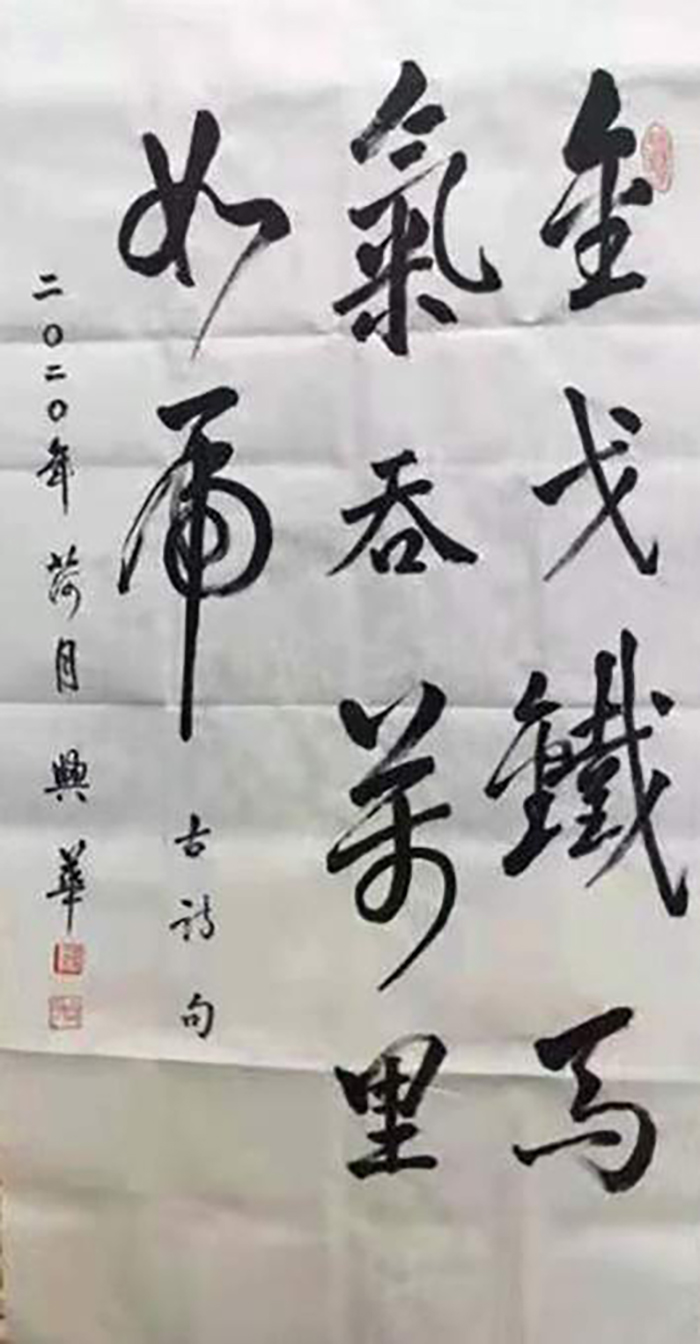 金戈鐵馬
氣吞萬里
如虎
古詩句
二〇二〇年荷月興華